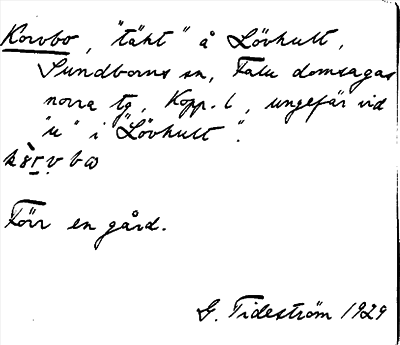 Korvbo, "täkt" å Lövhult,
Sundborns sn, Falu domsagas
norra tg, Kopp. l, ungefär vid
"u" i "Lövhult".
Förr en gård.
G. Tideström 1929